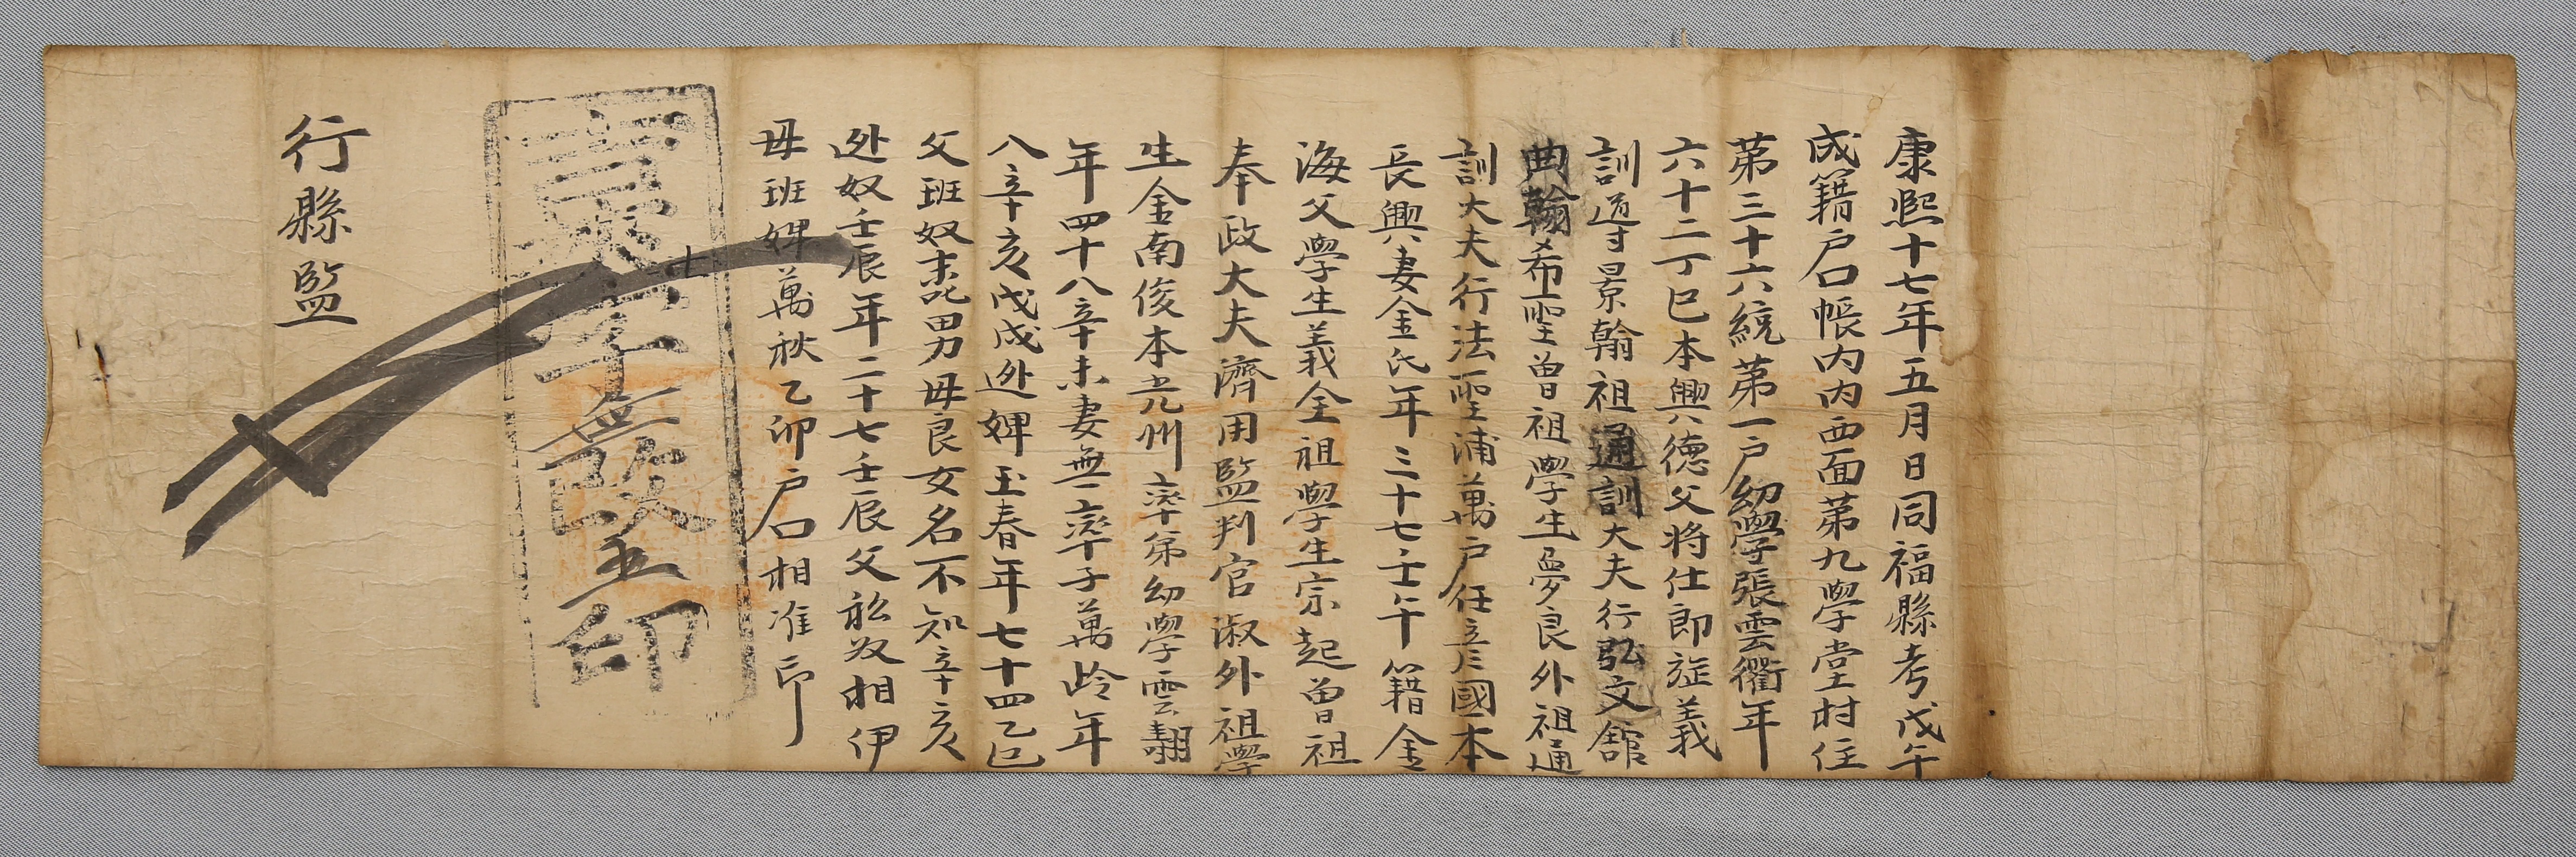 康熙十七年五月日同福縣考戊午
成籍户口帳内内西面第九學堂村住
第三十六統第一户幼學張雲衢年
六十二丁巳本興德父将仕郎旋義
訓導景翰祖通訓大夫行弘文舘
典翰希聖曽祖學生夢良外祖通
訓大夫行法聖浦萬户任立國本
長興妻金氏年三十七壬午籍金
海父學生義全祖學生宗起曽祖
奉政大夫濟用監判官淑外祖學
生金南俊本光州率弟幼學雲翮
年四十八辛未妻無率子萬岭年
八辛亥戊成逃婢玉春年七十四乙巳
父班奴男毋良女名不知辛亥
逃奴壬辰年二十七壬辰父班奴相伊
毋班婢萬秋乙卯户口相准印
字無改印
行縣監